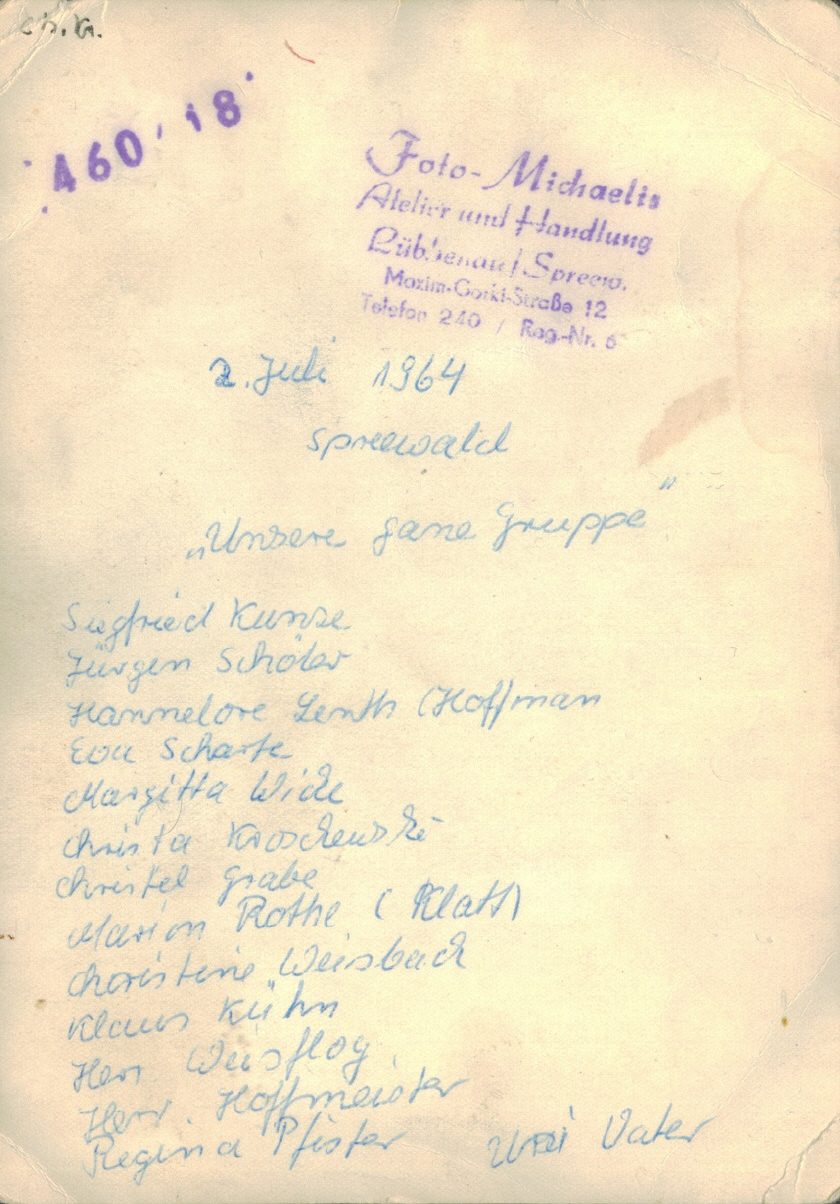 Ch. K.
460 / 18
Foto-Michaelis
Atelier und Handlung
Lübbenau / Spreew.
Maxim-Gorki-Straße 12
Telefon 240 / Reg.-Nr. 6
2. Juli 1964
Spreewald
„Unsere ganze Gruppe"
Siegfried Kunze
Jürgen Schöler
Hannelore Lenth (Hoffman
Eva Scharfe
Margitta Wicke
Christa Kroschewski
Christel Grabe
Marion Rothe (Klatt)
Christine Weisbach
Klaus Kühn
Herr Weisflog
Herr Hoffmeister
Regina Pfister Vater